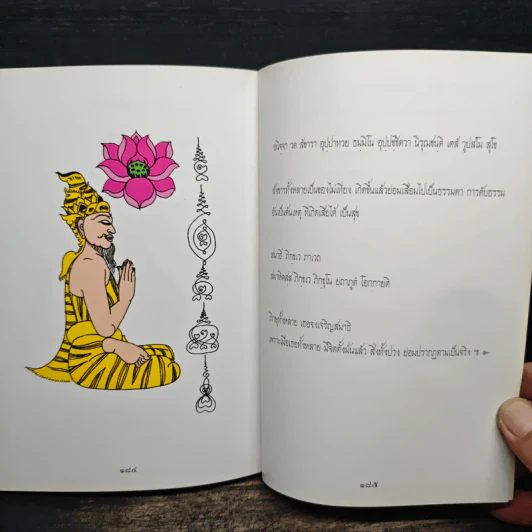 ๑๗๔
อนิจฺจา วต สํขารา อุปฺปาทวย ธมฺมิโน อุปฺปชฺชิตวา นิรุชฌนฺติ เตสํ วูปสโม สุโข
สังขารทั้งหลายเป็นของไม่เที่ยง เกิดขึ้นแล้วย่อมเสื่อมไปเป็นธรรมดา การดับธรรม
อันเป็นต้นเหตุ ที่เกิดเสียได้ เป็นสุข
สมาธึ ภิกฺขเว ภาเวถ
สมาหิตสฺส ภิกฺขเว ภิกฺขุโน ยถาภูตํ โอกกายติ
ภิกษุทั้งหลาย เธอจงเจริญสมาธิ
เพราะเมื่อเธอทั้งหลาย มีจิตตั้งมั่นแล้ว สิ่งทั้งปวง ย่อมปรากฏตามเป็นจริง ฯ ๛
๑๗๕